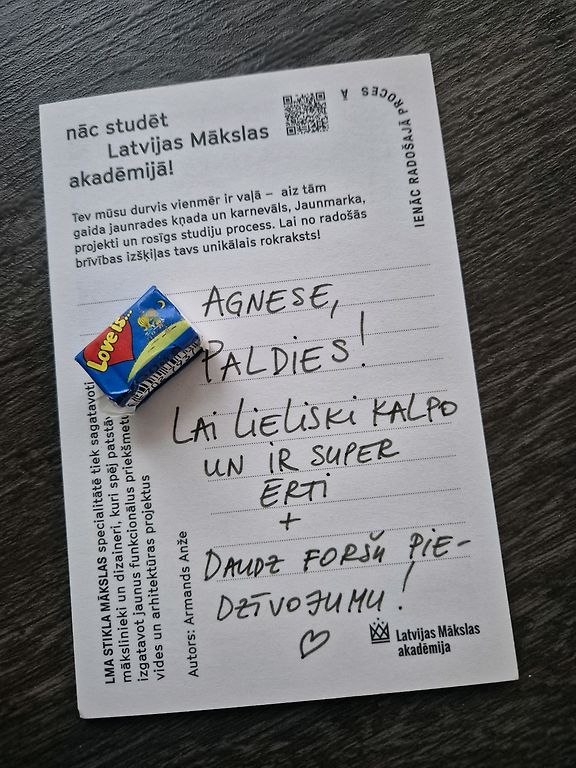 nāc studēt
Latvijas Mākslas
akadēmijā!
IENĀC RADOŠAJĀ PROCESĀ
Tev mūsu durvis vienmēr ir vaļā – aiz tām
gaida jaunrades kņada un karnevāls, Jaunmarka,
projekti un rosīgs studiju process. Lai no radošās
brīvības izšķiļas tavs unikālais rokraksts!
Love is...
AGNESE,
PALDIES!
LAI LIELISKI KALPO
UN IR SUPER
ĒRTI
+
DAUDZ FORŠU PIE-
DZĪVOJUMU!
LMA STIKLA MĀKSLAS specialitātē tiek sagatavoti
mākslinieki un dizaineri, kuri spēj
izgatavot jaunus funkcionālus
vides un arhitektūras projektus
Autors: Armands Anže
Latvijas Mākslas
akadēmija